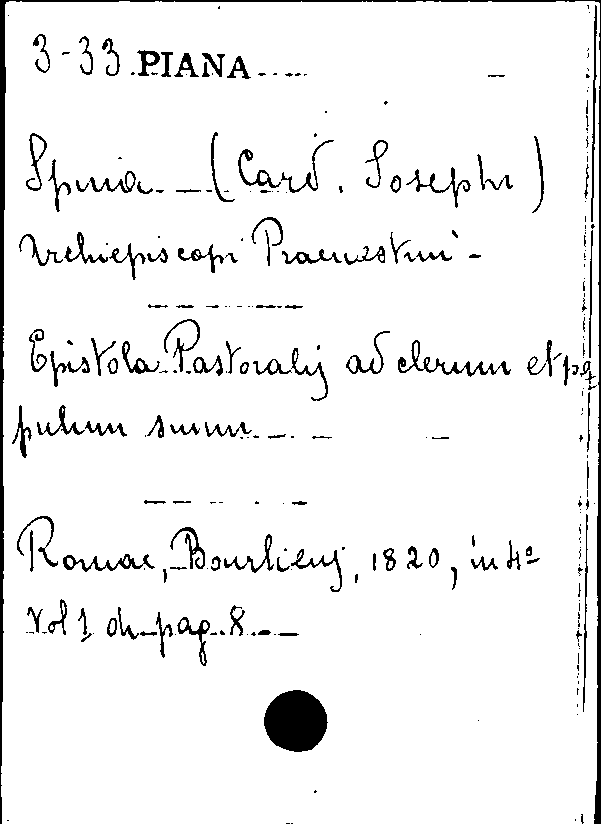 3-33 PIANA
Spina (Card. Josephi)
Archiepiscopi Praenestini -
Epistola Pastoralis ad clerum et po
pulum suum
Romae, Bourliens, 1820, in 4º
Vol 1 di pag. 8